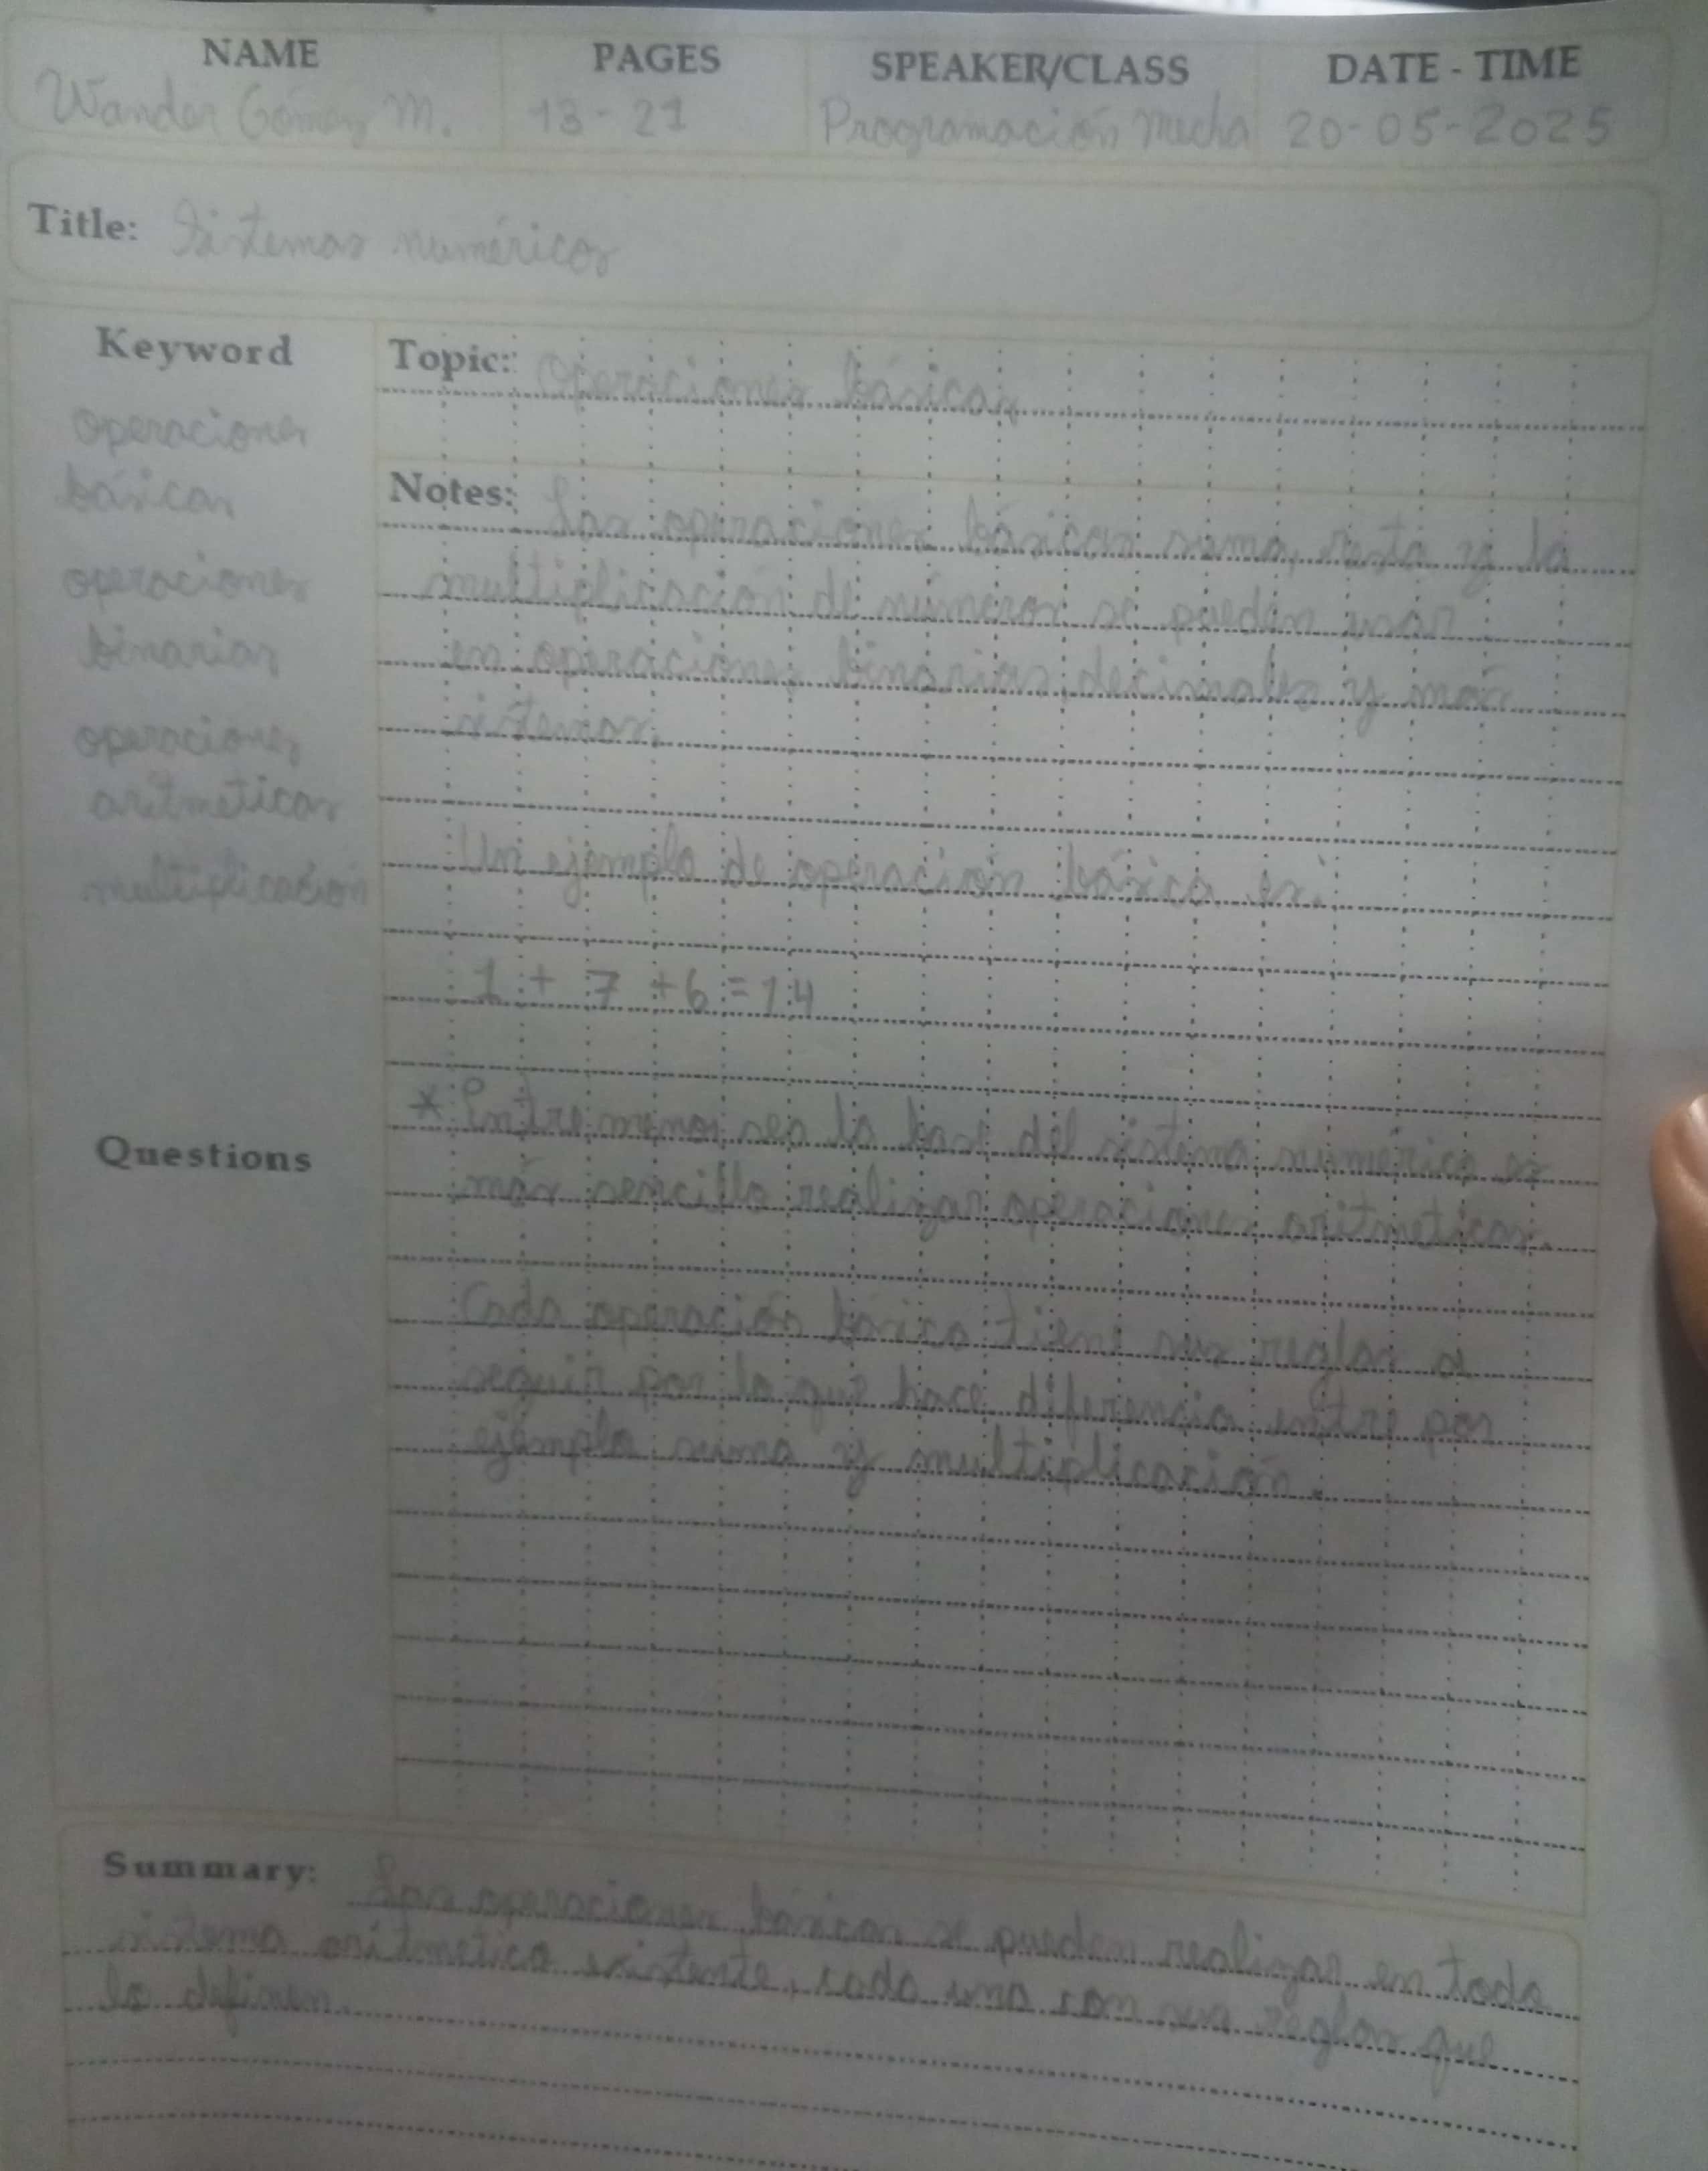 NAME PAGES SPEAKER/CLASS DATE - TIME
Wander Gómez M. 13-21 Programación Mecha 20-05-2025
Title: Sistemas numéricos
Keyword
operaciones
básicas
operaciones
binarias
operaciones
aritmeticas
multiplicación
Questions
Topic: Operaciones básicas
Notes: Las operaciones básicas suma, resta y la
multiplicación de números se pueden usar
en operaciones binarias, decimales y más
sistemas.
Un ejemplo de operación básica es:
1 + 7 + 6 = 14
* Entre menos sea la base del sistema numérico es
más sencillo realizar operaciones aritmeticas.
Cada operación básica tiene sus reglas a
seguir por lo que hace diferencia entre por
ejemplo suma y multiplicación.
Summary: Las operaciones básicas se pueden realizar en todo
sistema aritmetico existente, cada una con sus reglas que
lo definen.